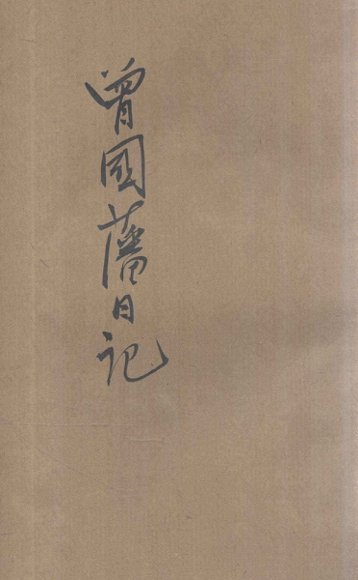 曾國藩日记